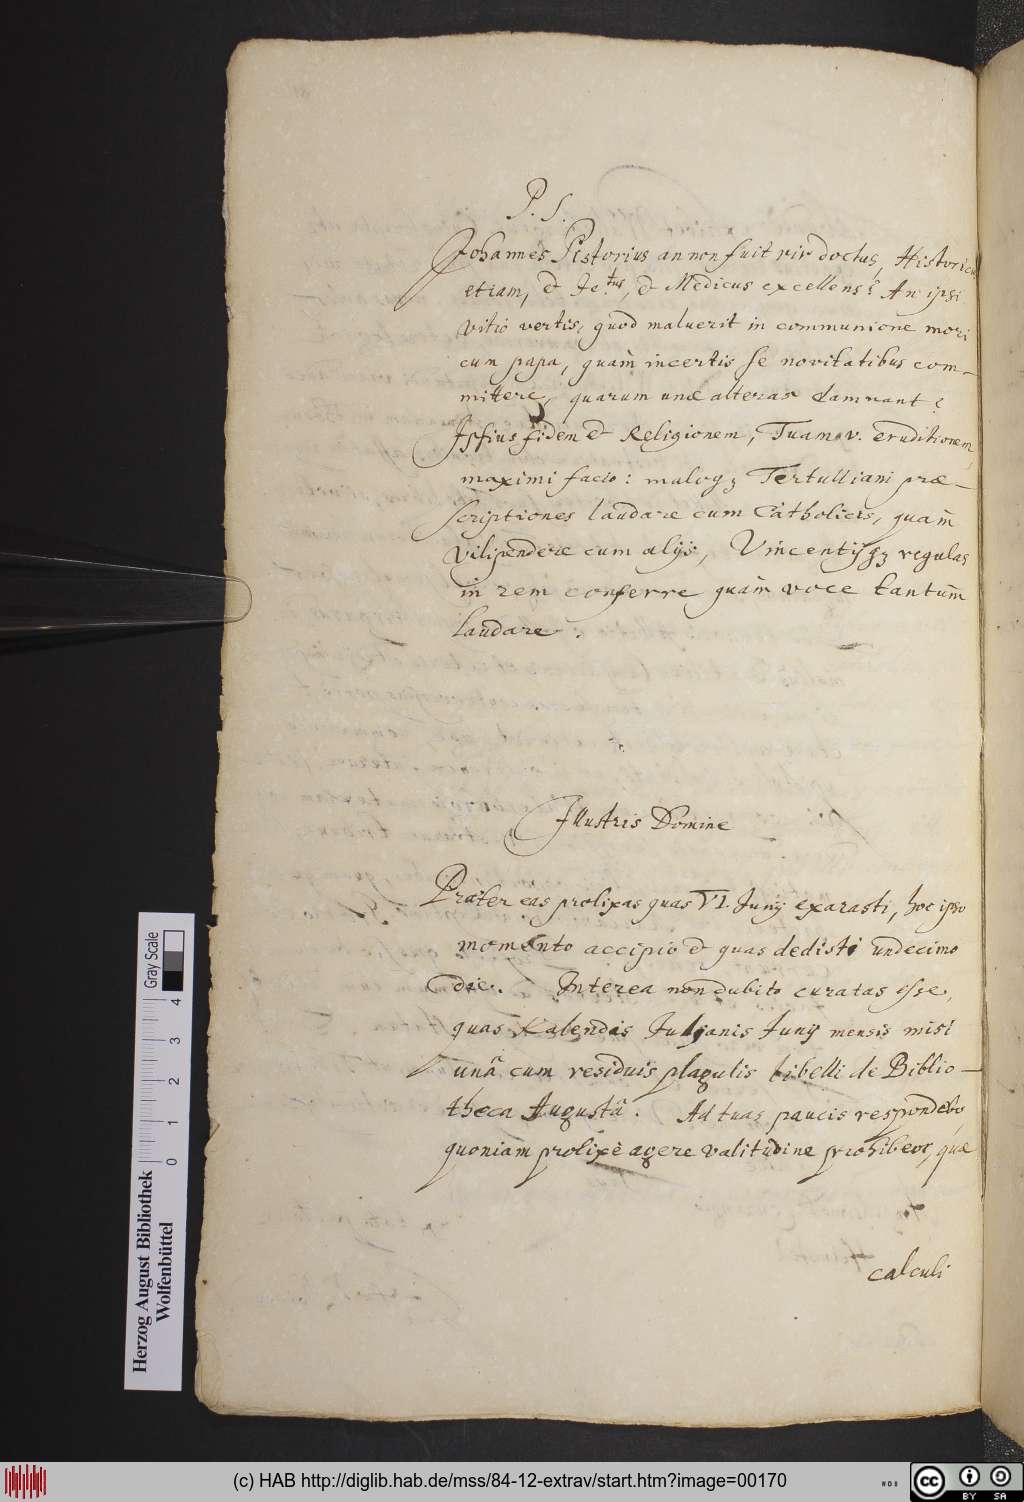 P. S.
Johannes Pistorius an non fuit vir doctus, Historicus
etiam, & Jc.tus, & Medicus excellens? An ipsi
vitio vertis, quod maluerit in communione mori
cum papa, quam incertis se novitatibus com–
mittere, quarum unæ alteras damnant?
Ipsius fidem & Religionem, Tuam v. eruditionem,
maximi facio: maloqꝫ Tertulliani præ–
scriptiones laudare cum Catholicis, quam
vilipendere cum alijs, Vincentijqꝫ regulas
in rem conferre quàm voce tantùm
laudare.
Illustris Domine
Præter eas prolixas quas VI. Junij exarasti, hoc ipso
momento accipio & quas dedisti undecimo
die. Interea non dubito curatas esse,
quas Kalendis Julianis Junij mensis misi
unâ cum residuis plagulis libelli de Biblio–
theca Augustâ. Ad tuas paucis respondebo
quoniam prolixè agere valitudine prohibeor, quæ
calculi
Gray Scale
0 1 2 3 4
Herzog August Bibliothek
Wolfenbüttel
(c) HAB http://diglib.hab.de/mss/84-12-extrav/start.htm?image=00170
cc BY SA